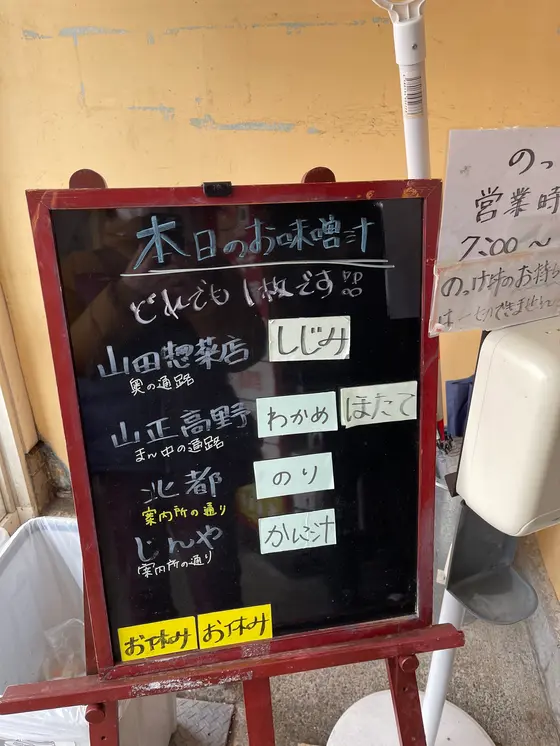 本日のお味噌汁
どれでも1枚です!!
山田惣菜店 しじみ
奥の通路
山正高野 わかめ ほたて
まん中の通路
北都 のり
案内所の通り
じんや かに汁
案内所の通り
お休み お休み
のっ
営業時
7:00〜
のっけ丼のお持ち
は一切できません